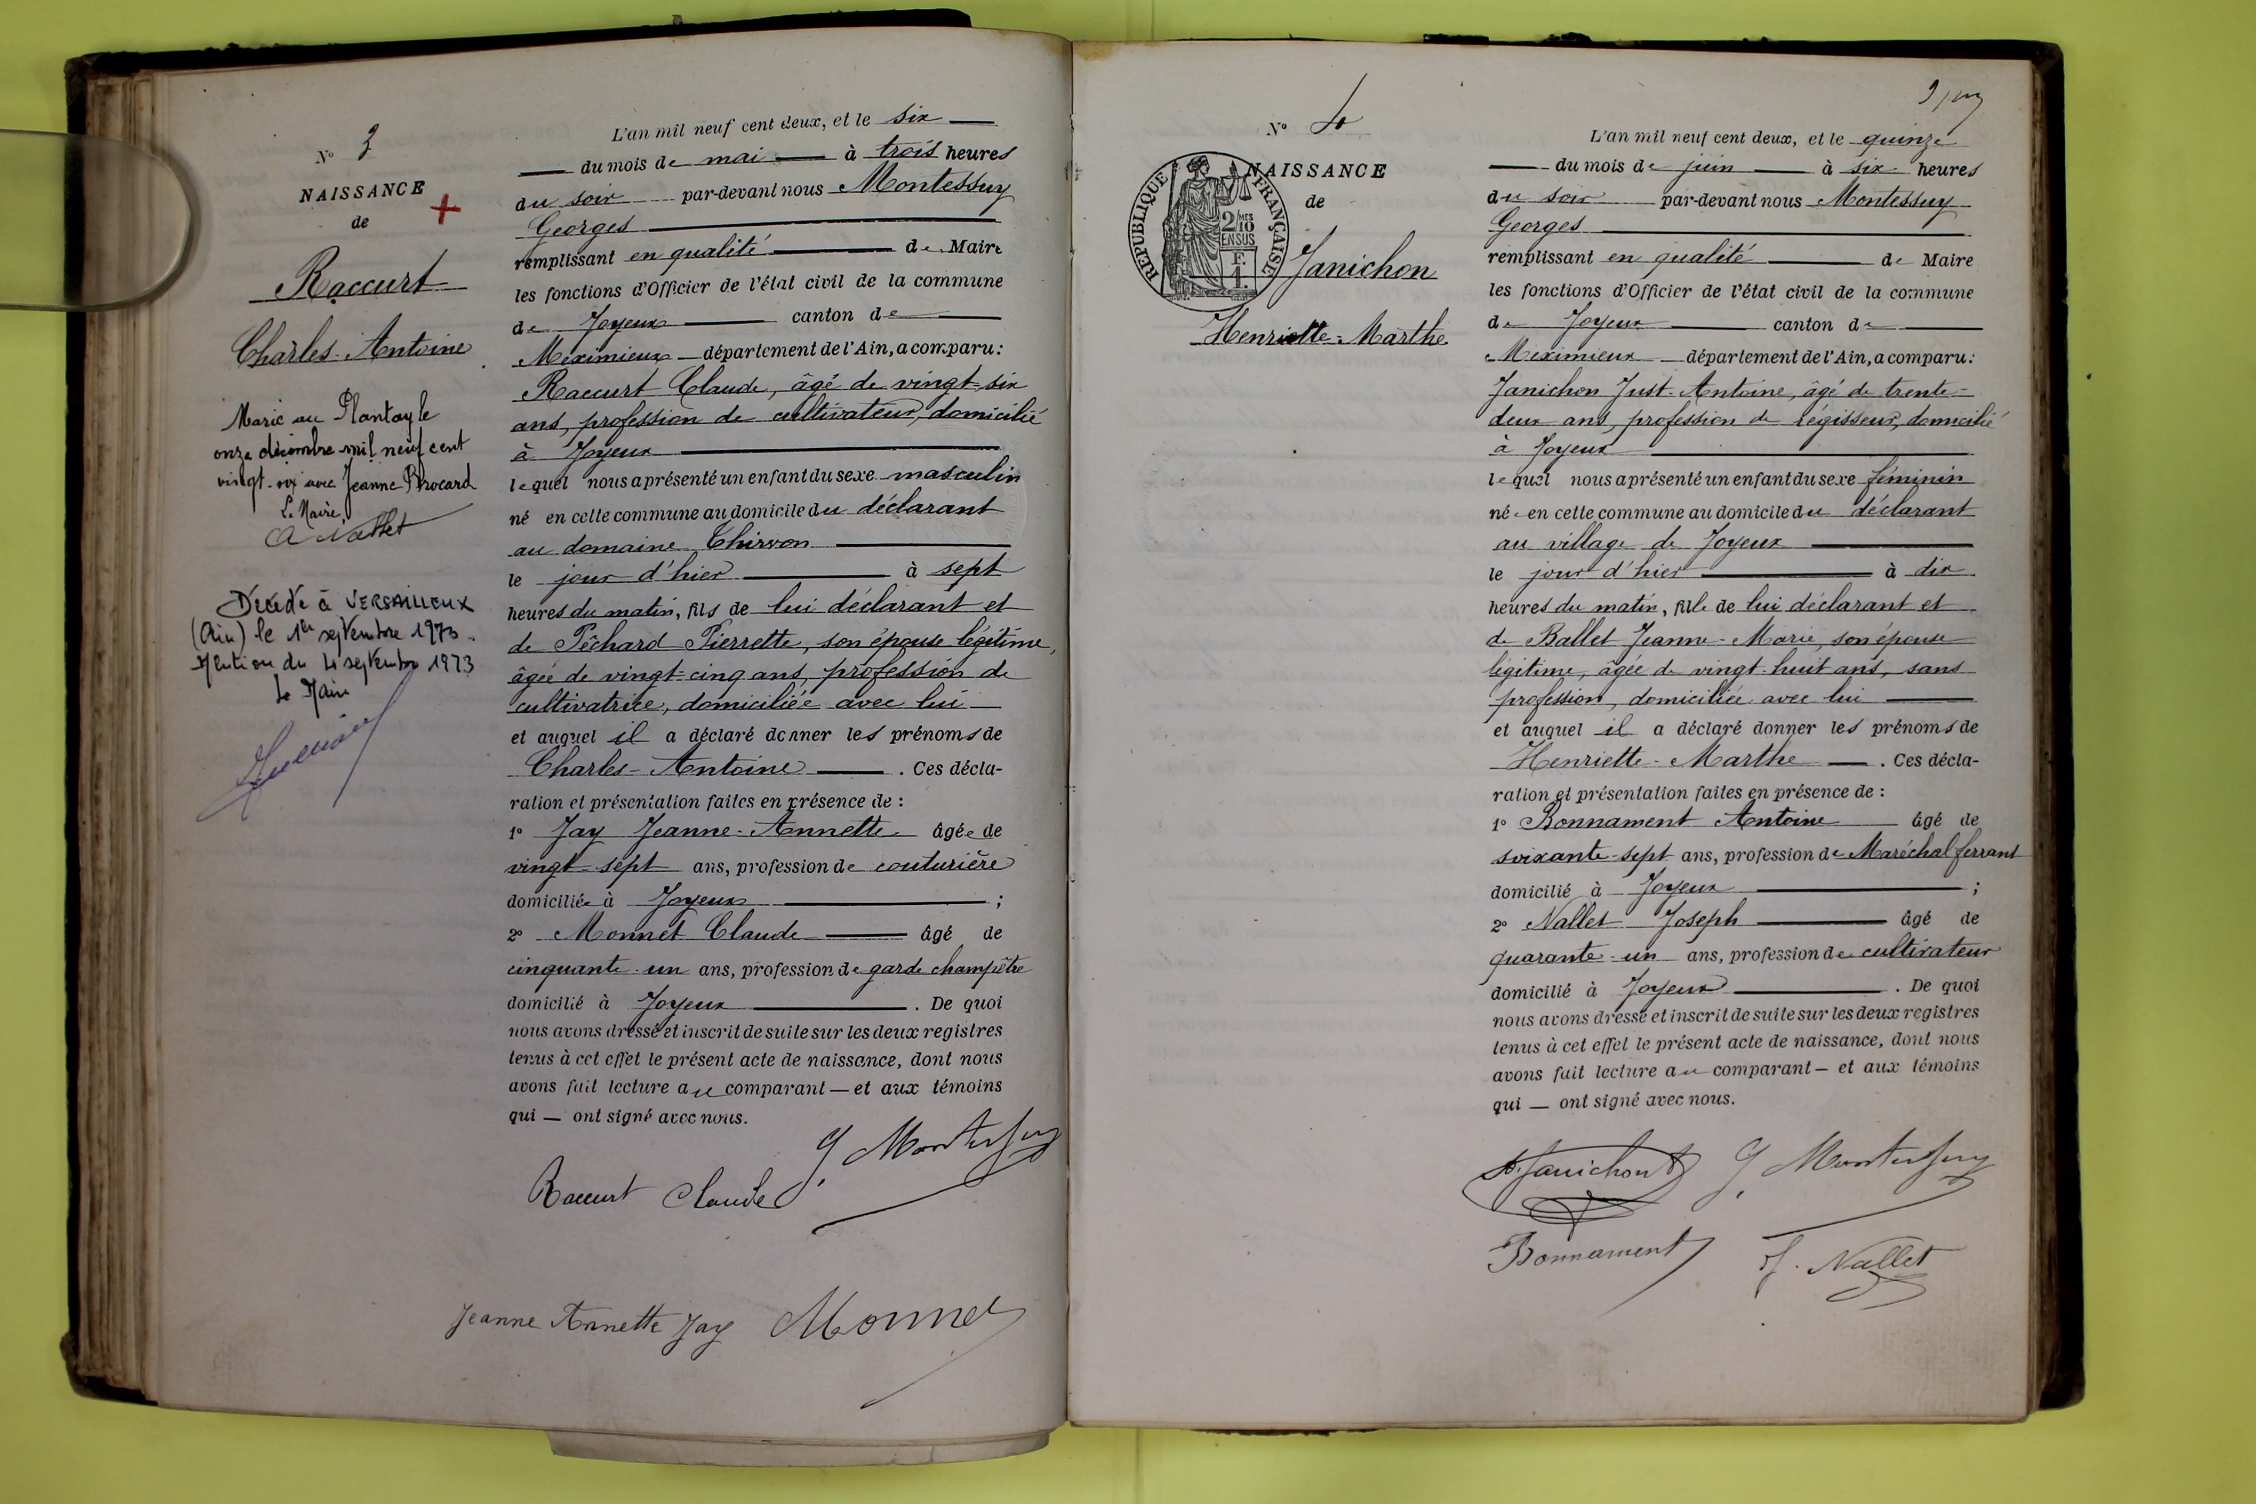 N° 3
NAISSANCE
de
Raccurt
Charles-Antoine
Marié au Plantay le
onze décembre mil neuf cent
vingt-six avec Jeanne Brocard
Le Maire,
A Nallet
Décédé à VERSAILLEUX
(Ain) le 1er septembre 1973.
Mention du 4 septembre 1973
Le Maire
L'an mil neuf cent deux, et le six
du mois de mai à trois heures
du soir par-devant nous Montessuy
Georges
remplissant en qualité de Maire
les fonctions d'Officier de l'état civil de la commune
de Joyeux canton de
Meximieux département de l'Ain, a comparu:
Raccurt Claude, âgé de vingt-six
ans, profession de cultivateur, domicilié
à Joyeux
lequel nous a présenté un enfant du sexe masculin
né en cette commune au domicile du déclarant
au domaine Chirvon
le jour d'hier à sept
heures du matin, fils de lui déclarant et
de Pêchard Pierrette, son épouse légitime,
âgée de vingt-cinq ans, profession de
cultivatrice, domiciliée avec lui
et auquel il a déclaré donner les prénoms de
Charles-Antoine. Ces décla-
ration et présentation faites en présence de :
1° Jay Jeanne-Annette âgée de
vingt-sept ans, profession de couturière
domiciliée à Joyeux ;
2° Monnet Claude âgé de
cinquante-un ans, profession de garde champêtre
domicilié à Joyeux. De quoi
nous avons dressé et inscrit de suite sur les deux registres
tenus à cet effet le présent acte de naissance, dont nous
avons fait lecture au comparant — et aux témoins
qui — ont signé avec nous.
G. Montessuy
Raccurt Claude
Jeanne Annette Jay Monnet
N° 4
NAISSANCE
de
REPUBLIQUE FRANÇAISE
2/10 MES
EN SUS
F.
1.
Janichon
Henriette-Marthe
L'an mil neuf cent deux, et le quinze
du mois de juin à six heures
du soir par-devant nous Montessuy
Georges
remplissant en qualité de Maire
les fonctions d'Officier de l'état civil de la commune
de Joyeux canton de
Meximieux département de l'Ain, a comparu:
Janichon Just-Antoine, âgé de trente-
deux ans, profession de régisseur, domicilié
à Joyeux
lequel nous a présenté un enfant du sexe féminin
née en cette commune au domicile du déclarant
au village de Joyeux
le jour d'hier à dix
heures du matin, fille de lui déclarant et
de Ballet Jeanne-Marie, son épouse
légitime, âgée de vingt-huit ans, sans
profession, domiciliée avec lui
et auquel il a déclaré donner les prénoms de
Henriette-Marthe. Ces décla-
ration et présentation faites en présence de :
1° Bonnament Antoine âgé de
soixante-sept ans, profession de Maréchal ferrant
domicilié à Joyeux ;
2° Nallet Joseph âgé de
quarante-un ans, profession de cultivateur
domicilié à Joyeux. De quoi
nous avons dressé et inscrit de suite sur les deux registres
tenus à cet effet le présent acte de naissance, dont nous
avons fait lecture au comparant — et aux témoins
qui — ont signé avec nous.
Janichon G. Montessuy
Bonnament J. Nallet